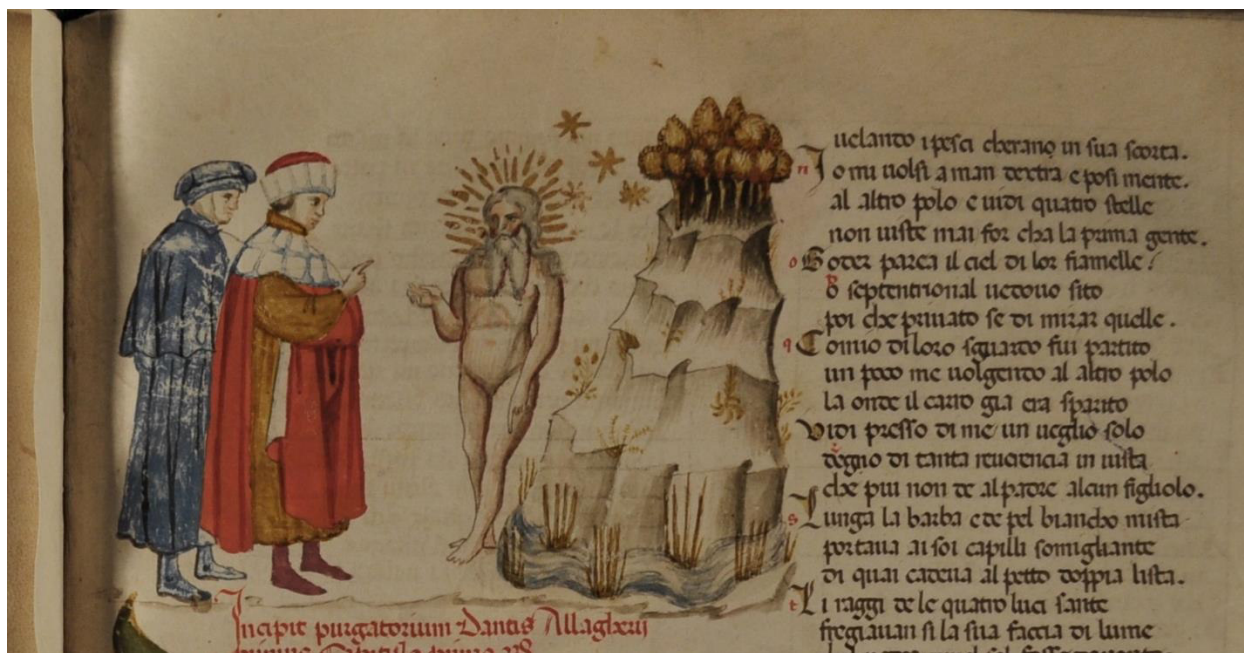 Incipit purgatorium Dantis Allagherii
uelando i pesci cherano in sua scorta.
n Io mi uolsi a man dextra e posi mente.
al altro polo e uidi quatro stelle
non uiste mai for cha la prima gente.
o Goder parea il ciel di lor fiamelle
o septentrional uedouo sito
poi che priuato se di mirar quelle.
q Comio di loro sguardo fui partito
un poco me uolgendo al altro polo
la onde il carro gia era sparito
Vidi presso di me un ueglio solo
degno di tanta reuerencia in uista
che piu non de al patre alcun figliolo.
s Lunga la barba e de pel biancho mista
portaua ai soi capilli somigliante
di quai cadeua al petto doppia lista.
t Li raggi de le quatro luci sante
fregiauan si la sua faccia di lume